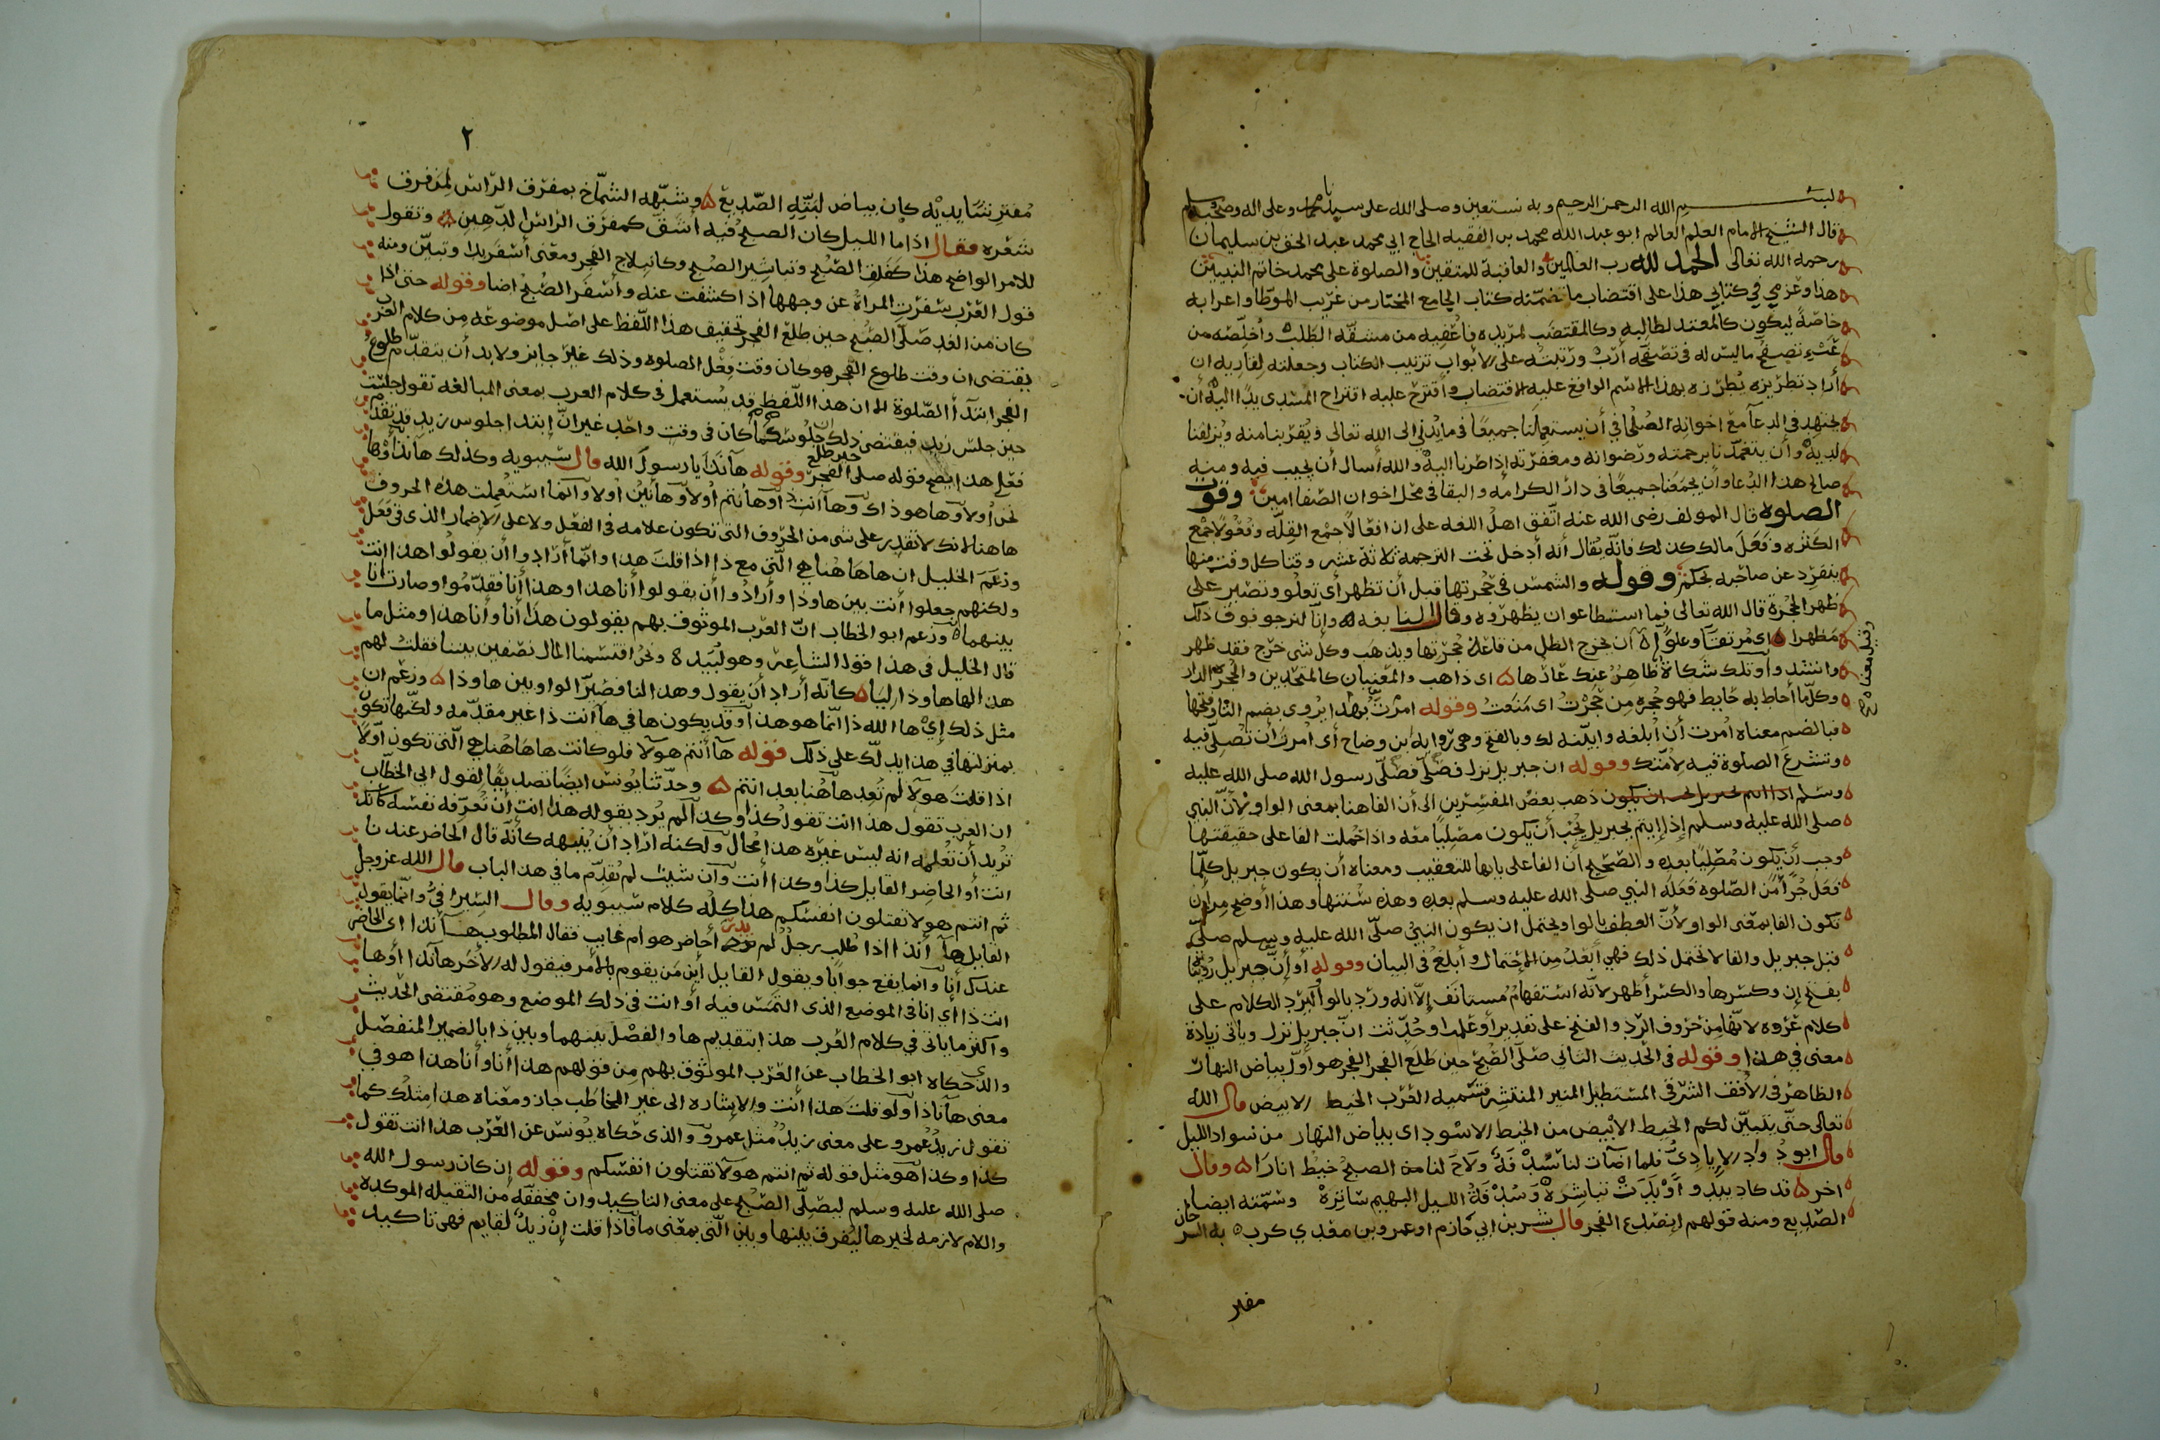 بسم الله الرحمن الرحيم وبه نستعين وصلى الله على سيدنا محمد وعلى اله وصحبه وسلم
قال الشيخ الامام العلم العالم ابو عبد الله محمد بن الفقيه الحاج ابي محمد عبد الحق بن سليمان
رحمه الله تعالى الحمد لله رب العالمين والعاقبة للمتقين والصلوة على محمد خاتم النبيين
هذا وغرضي في كتابي هذا على اقتضاب ما تضمنه كتاب الجامع المختار من غريب الموطا واعرابه
خاصة ليكون كالمعتد لطالبه وكالمقتضب لمريده فاعفيه من مشقة الطلب واخلصه من
تصفح ماليس له في تصفحه أرب ورتبته على الابواب ترتيب الكتاب وجعلته لقاريه ان
أراد تطريزه يطرزه بهذا الاسم الواقع عليه الاقتضاب واقترح عليه اقتراح المسدي يدا اليه أن
يجتهد في الدعآ مع اخوانه الصلحا في أن يستعملنا جميعا في ما يدني الى الله تعالى ويقربنا منه ويزلفنا
لديه وأن يتغمدنا برحمته ورضوانه ومغفرته إذا صرنا اليه والله أسال أن يجيب فيه ومنه
صالح هذا الدعا وأن يجمعنا جميعا في دار الكرامه والبقا في محل اخوان الصفا امين وقوت
الصلوه قال المولف رضى الله عنه اتفق اهل اللغه على ان افعالا جمع القله وفعولا جمع
الكثره وفعل مالك كن لك فانه يقال أنه أدخل تحت الترجمه ثلاثة عشر وقتا كل وقت منها
ينفرد عن صاحبه بحكم وقوله والشمس في حجرتها قبل أن تظهر أى تعلو وتصير على
ظهر الحجرة قال الله تعالى فما استطاعو ان يظهروه وقال النابغه وإنا لنرجو فوق ذلك
مظهرا اى مرتفقا وعلوا أن يخرج الظل من قاعة حجرتها ويذهب وكل شى خرج فقد ظهر
وانشد وأوتلك شكاة ظاهر عنك عارها اى ذاهب والمعنيان كالمتحدين والحجرة الدار
وكلما أحاط به حايط فهو حجره من حجرت اى منعت وقوله امرت بهذا يروى بضم التا وفتحها
فبا لضم معناه أمرت أن أبلغه وابينه لك وبالفتح وهى روايه ابن وضاح أى أمرت أن تصلي فيه
وتشرع الصلوة فيه لأمتك وقوله ان جبريل نزل فصلى فصلى رسول الله صلى الله عليه
وسلم ذهب بعض المفسرين الى أن الفا هنا بمعنى الواو لأن النبي
صلى الله عليه وسلم إذا إيتم بجبريل يجب أن يكون مصليا معه واذا حملت الفا على حقيقتها
وجب أن يكون مصليا بعده والصحيح أن الفا على بابها للتعقيب ومعناه أن يكون جبريل كلما
فعل جزأ من الصلوه فعله النبي صلى الله عليه وسلم بعده وهذه سنتها وهذا أوضح من أن
تكون الفا بمعنى الواو لأن العطف بالواو يحتمل ان يكون النبي صلى الله عليه وسلم صلى
قبل جبريل والفا لا تحتمل ذلك فهي أبعد من الاحتمال وأبلغ في البيان وقوله أو إن جبريل رويناه
بفتح إن وكسرها والكسر أظهر لانه استفهام مستانف إلا انه ورد بالواو ليرد الكلام على
كلام عروه لانها من حروف الرد والفتح على تقدير أو علمت او حدثت ان جبريل نزل وياتى زيادة
معنى في هذا وقوله في الحديث الثانى صلى الصبح حين طلع الفجر الفجر هو أول بياض النهار
الظاهر في الأفق الشرقى المستطيل المنير المنتشر تسميه العرب الخيط الابيض قال الله
تعالى حتى يتبين لكم الخيط الابيض من الخيط الاسود اى بياض النهار من سواد الليل
قال ابو دواد الايادى فلما اضآت لنا سدفة ولاح لنا من الصبح خيط انارا وقال
اخر قد كاد يبدو أو بدت تباشره وسدفة الليل البهيم ساتره وسمته ايضا
الصديع ومنه قولهم انصدع الفجر قال بشر بن ابي خازم او عمرو بن معدي كرب به السرحان
مفتر
٢
مفترشا يديه كان بياض لبته الصديع وشبهه الشماخ بمفرق الراس لمن فرق
شعره فقال اذا ما الليل كان الصبح فيه أشق كمفرق الراس الدهين وتقول
للامر الواضح هذا كفلق الصبح وتباشير الصبح وكانبلاج الفجر ومعنى أسفر بدا وتبين ومنه
قول العرب سفرت المراة عن وجهها اذا كشفت عنه وأسفر الصبح اضا وقوله حتى اذا
كان من الغد صلى الصبح حين طلع الفجر تحقيق هذا اللفظ على اصل موضوعه من كلام العرب
يقتضى ان وقت طلوع الفجر هو كان وقت فعل الصلوه وذلك غير جايز ولا بد أن يتقدم طلوع
الفجر ابتدآ الصلوة الا ان هذا اللفظ قد يستعمل في كلام العرب بمعنى المبالغه تقول جلست
حين جلس زيد فيقتضى ذلك ان جلوسكما كان فى وقت واحد غير ان إبتدا جلوس زيد قد تقدم
فعلى هذا يصح قوله صلى حين طلع الفجر وقوله هآنذا يا رسول الله قال سيبويه وكذلك هآنذا وها
نحن أولآ وها هوذاك وهآ أنت ذا وها أنتم أولآ وهآنتن أولآ وانما استعملت هذه الحروف
هاهنا لانك لا تقدر على شى من الحروف التى تكون علامه فى الفعل ولا على الاضمار الذى فى فعل
وزعم الخليل ان هاها هنا هي التى مع ذا اذا قلت هذا وانما أرادوا أن يقولوا هذا انت
ولكنهم جعلوا أنت بين ها وذا وأرادوا أن يقولوا أنا هذا وهذا أنا فقدموا وصارت انا
بينهما وزعم ابو الخطاب ان العرب الموثوق بهم يقولون هذا أنا وأنا هذا ومثل ما
قال الخليل في هذا قول الشاعر وهو لبيد ونحن اقتسمنا المال نصفين بيننا فقلت لهم
هذا لها ها وذا ليا كانه أراد أن يقول وهذا لنا فصير الواو بين ها وذا وزعم ان
مثل ذلك إي ها الله ذا انما هو هذا وقد يكون ها في هآ انت ذا غير مقدمه ولكنها تكون
بمنزلتها في هذا يدلك على ذلك قوله هآ أنتم هولآ فلو كانت هاها هنا هي التى تكون أولا
اذا قلت هولآ لم تعد ها هنا بعد انتم وحدثنا يونس ايضا تصديقا لقول ابى الخطاب
ان العرب تقول هذا انت تقول كذا وكذا لم يرد بقوله هذا انت أن تعرفه نفسه كانك
تريد أن تعلمه انه ليس غيره هذا محال ولكنه اراد أن ينبهه كأنه قال الحاضر عندنا
انت أو الحاضر القايل كذا وكذا أنت وان شيت لم تقدم ها في هذا الباب قال الله عز وجل
ثم انتم هولا تقتلون انفسكم هذا كله كلام سيبويه وقال السيرافي وانما يقول
القايل هآ أنذا اذا طلب رجل لم يدر أحاضر هو ام غايب فقال المطلوب هآنذا اى الحاضر
عندك أنا وانما يقع جوابا ويقول القايل أين من يقوم بالأمر فيقول له الآخر هآنذا أو ها
انت ذا اي انا فى الموضع الذى التمس فيه أو انت فى ذلك الموضع وهو مقتضى الحديث
واكثر ما ياتى في كلام العرب هذا بتقديم ها والفصل بينهما وبين ذا بالضمير المنفصل
والذي حكاه ابو الخطاب عن العرب الموثوق بهم من قولهم هذا أنا وأنا هذا هو في
معنى هآناذا ولو قلت هذا أنت والإشاره الى غير المخاطب جاز ومعناه هذا مثلك كما
تقول زيد عمرو على معنى زيد مثل عمرو والذى حكاه يونس عن العرب هذا انت تقول
كذا وكذا هو مثل قوله ثم انتم هولا تقتلون انفسكم وقوله إن كان رسول الله
صلى الله عليه وسلم ليصلي الصبح على معنى التاكيد وان مخففة من الثقيله الموكده
واللام لازمه لخبرها ليفرق بينها وبين التى بمعنى ما فاذا قلت إن زيد لقايم فهى تاكيد